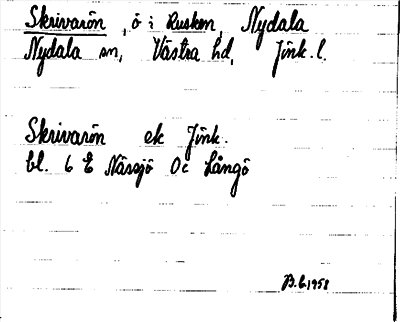 Skrivarön, ö i Rusken, Nydala
Nydala sn, Västra hd, Jönk. l.
Skrivarön ek Jönk.
bl. 6 E Nässjö 0c Långö
B.L. 1958